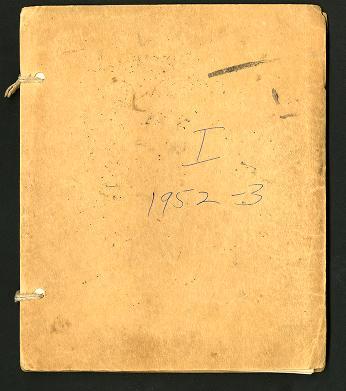 I
1952-3